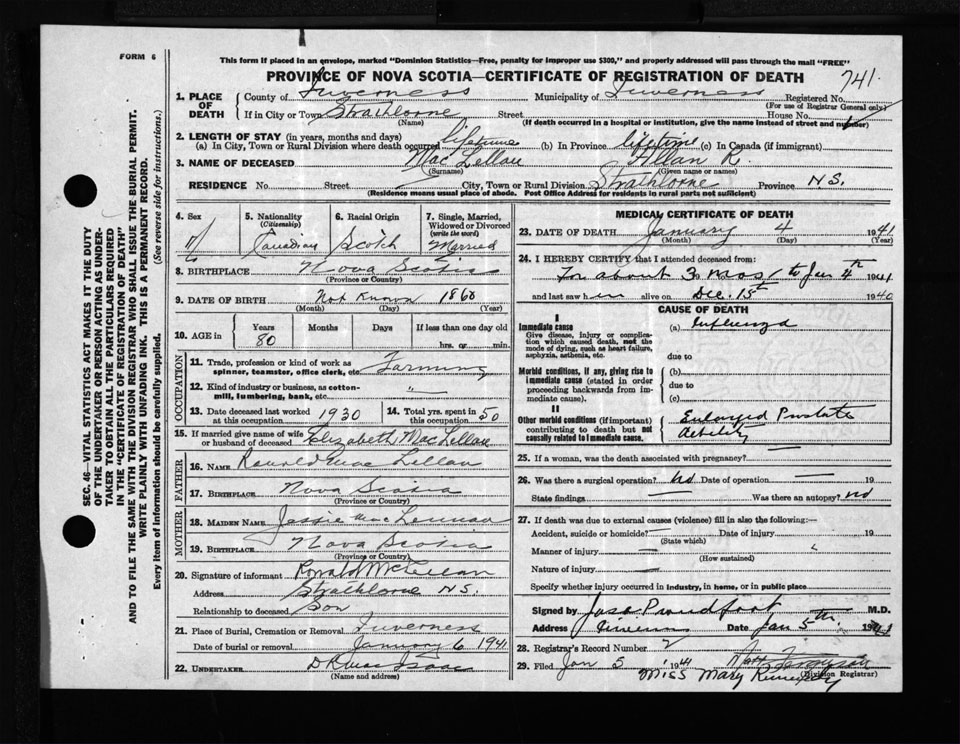 FORM 6
This form if placed in an envelope, marked "Dominion Statistics—Free, penalty for improper use $300," and properly addressed will pass through the mail "FREE"
PROVINCE OF NOVA SCOTIA—CERTIFICATE OF REGISTRATION OF DEATH
741.
1. PLACE OF DEATH
County of Inverness Municipality of Inverness Registered No.
(For use of Registrar General only)
If in City or Town Strathlorne Street House No.
(Name) (If death occurred in a hospital or institution, give the name instead of street and number)
2. LENGTH OF STAY (in years, months and days)
(a) In City, Town or Rural Division where death occurred lifetime (b) In Province lifetime (c) In Canada (if immigrant)
3. NAME OF DECEASED MacLellan Allan R.
(Surname) (Given name or names)
RESIDENCE No. Street City, Town or Rural Division Strathlorne Province N.S.
(Residence means usual place of abode. Post Office Address for residents in rural parts not sufficient)
4. Sex M
5. Nationality (Citizenship) Canadian
6. Racial Origin Scotch
7. Single, Married, Widowed or Divorced (write the word) Married
8. BIRTHPLACE Nova Scotia
(Province or Country)
9. DATE OF BIRTH Not Known 1860
(Month) (Day) (Year)
10. AGE in Years 80 Months Days If less than one day old
hrs. or min.
OCCUPATION
11. Trade, profession or kind of work as spinner, teamster, office clerk, etc. Farming
12. Kind of industry or business, as cotton-mill, lumbering, bank, etc. "
13. Date deceased last worked at this occupation 1930
14. Total yrs. spent in this occupation 50
15. If married give name of wife or husband of deceased Elizabeth MacLellan
FATHER
16. NAME Ronald MacLellan
17. BIRTHPLACE Nova Scotia
(Province or Country)
MOTHER
18. MAIDEN NAME Jessie MacLennan
19. BIRTHPLACE Nova Scotia
(Province or Country)
20. Signature of informant Ronald McLellan
Address Strathlorne N.S.
Relationship to deceased Son
21. Place of Burial, Cremation or Removal Inverness
Date of burial or removal January 6 1941
22. UNDERTAKER D R MacIsaac
(Name and address)
MEDICAL CERTIFICATE OF DEATH
23. DATE OF DEATH January 4 1941
(Month) (Day) (Year)
24. I HEREBY CERTIFY that I attended deceased from:
For about 3 mos. to Jan 4th 1941
and last saw him alive on Dec. 15th 1940
CAUSE OF DEATH
I
Immediate cause
Give disease, injury or complication which caused death, not the mode of dying, such as heart failure, asphyxia, asthenia, etc.
(a) Influenza
due to
Morbid conditions, if any, giving rise to immediate cause (stated in order proceeding backwards from immediate cause).
(b)
due to
(c)
II
Other morbid conditions (if important) contributing to death but not causally related to immediate cause.
Enlarged Prostate
debility
25. If a woman, was the death associated with pregnancy?
26. Was there a surgical operation? No Date of operation 19
State findings Was there an autopsy? no
27. If death was due to external causes (violence) fill in also the following:—
Accident, suicide or homicide? Date of injury 19
(State which)
Manner of injury
(How sustained)
Nature of injury
Specify whether injury occurred in industry, in home, or in public place
Signed by Jas Proudfoot M.D.
Address Date Jan 5th. 1941
28. Registrar's Record Number 2
29. Filed Jan 5 1941
Miss Mary Kennedy
(Division Registrar)
SEC. 46—VITAL STATISTICS ACT MAKES IT THE DUTY
OF THE UNDERTAKER OR PERSON ACTING AS UNDER-
TAKER TO OBTAIN ALL THE PARTICULARS REQUIRED
IN THE "CERTIFICATE OF REGISTRATION OF DEATH"
AND TO FILE THE SAME WITH THE DIVISION REGISTRAR WHO SHALL ISSUE THE BURIAL PERMIT.
WRITE PLAINLY WITH UNFADING INK. THIS IS A PERMANENT RECORD.
Every item of information should be carefully supplied. (See reverse side for instructions.)